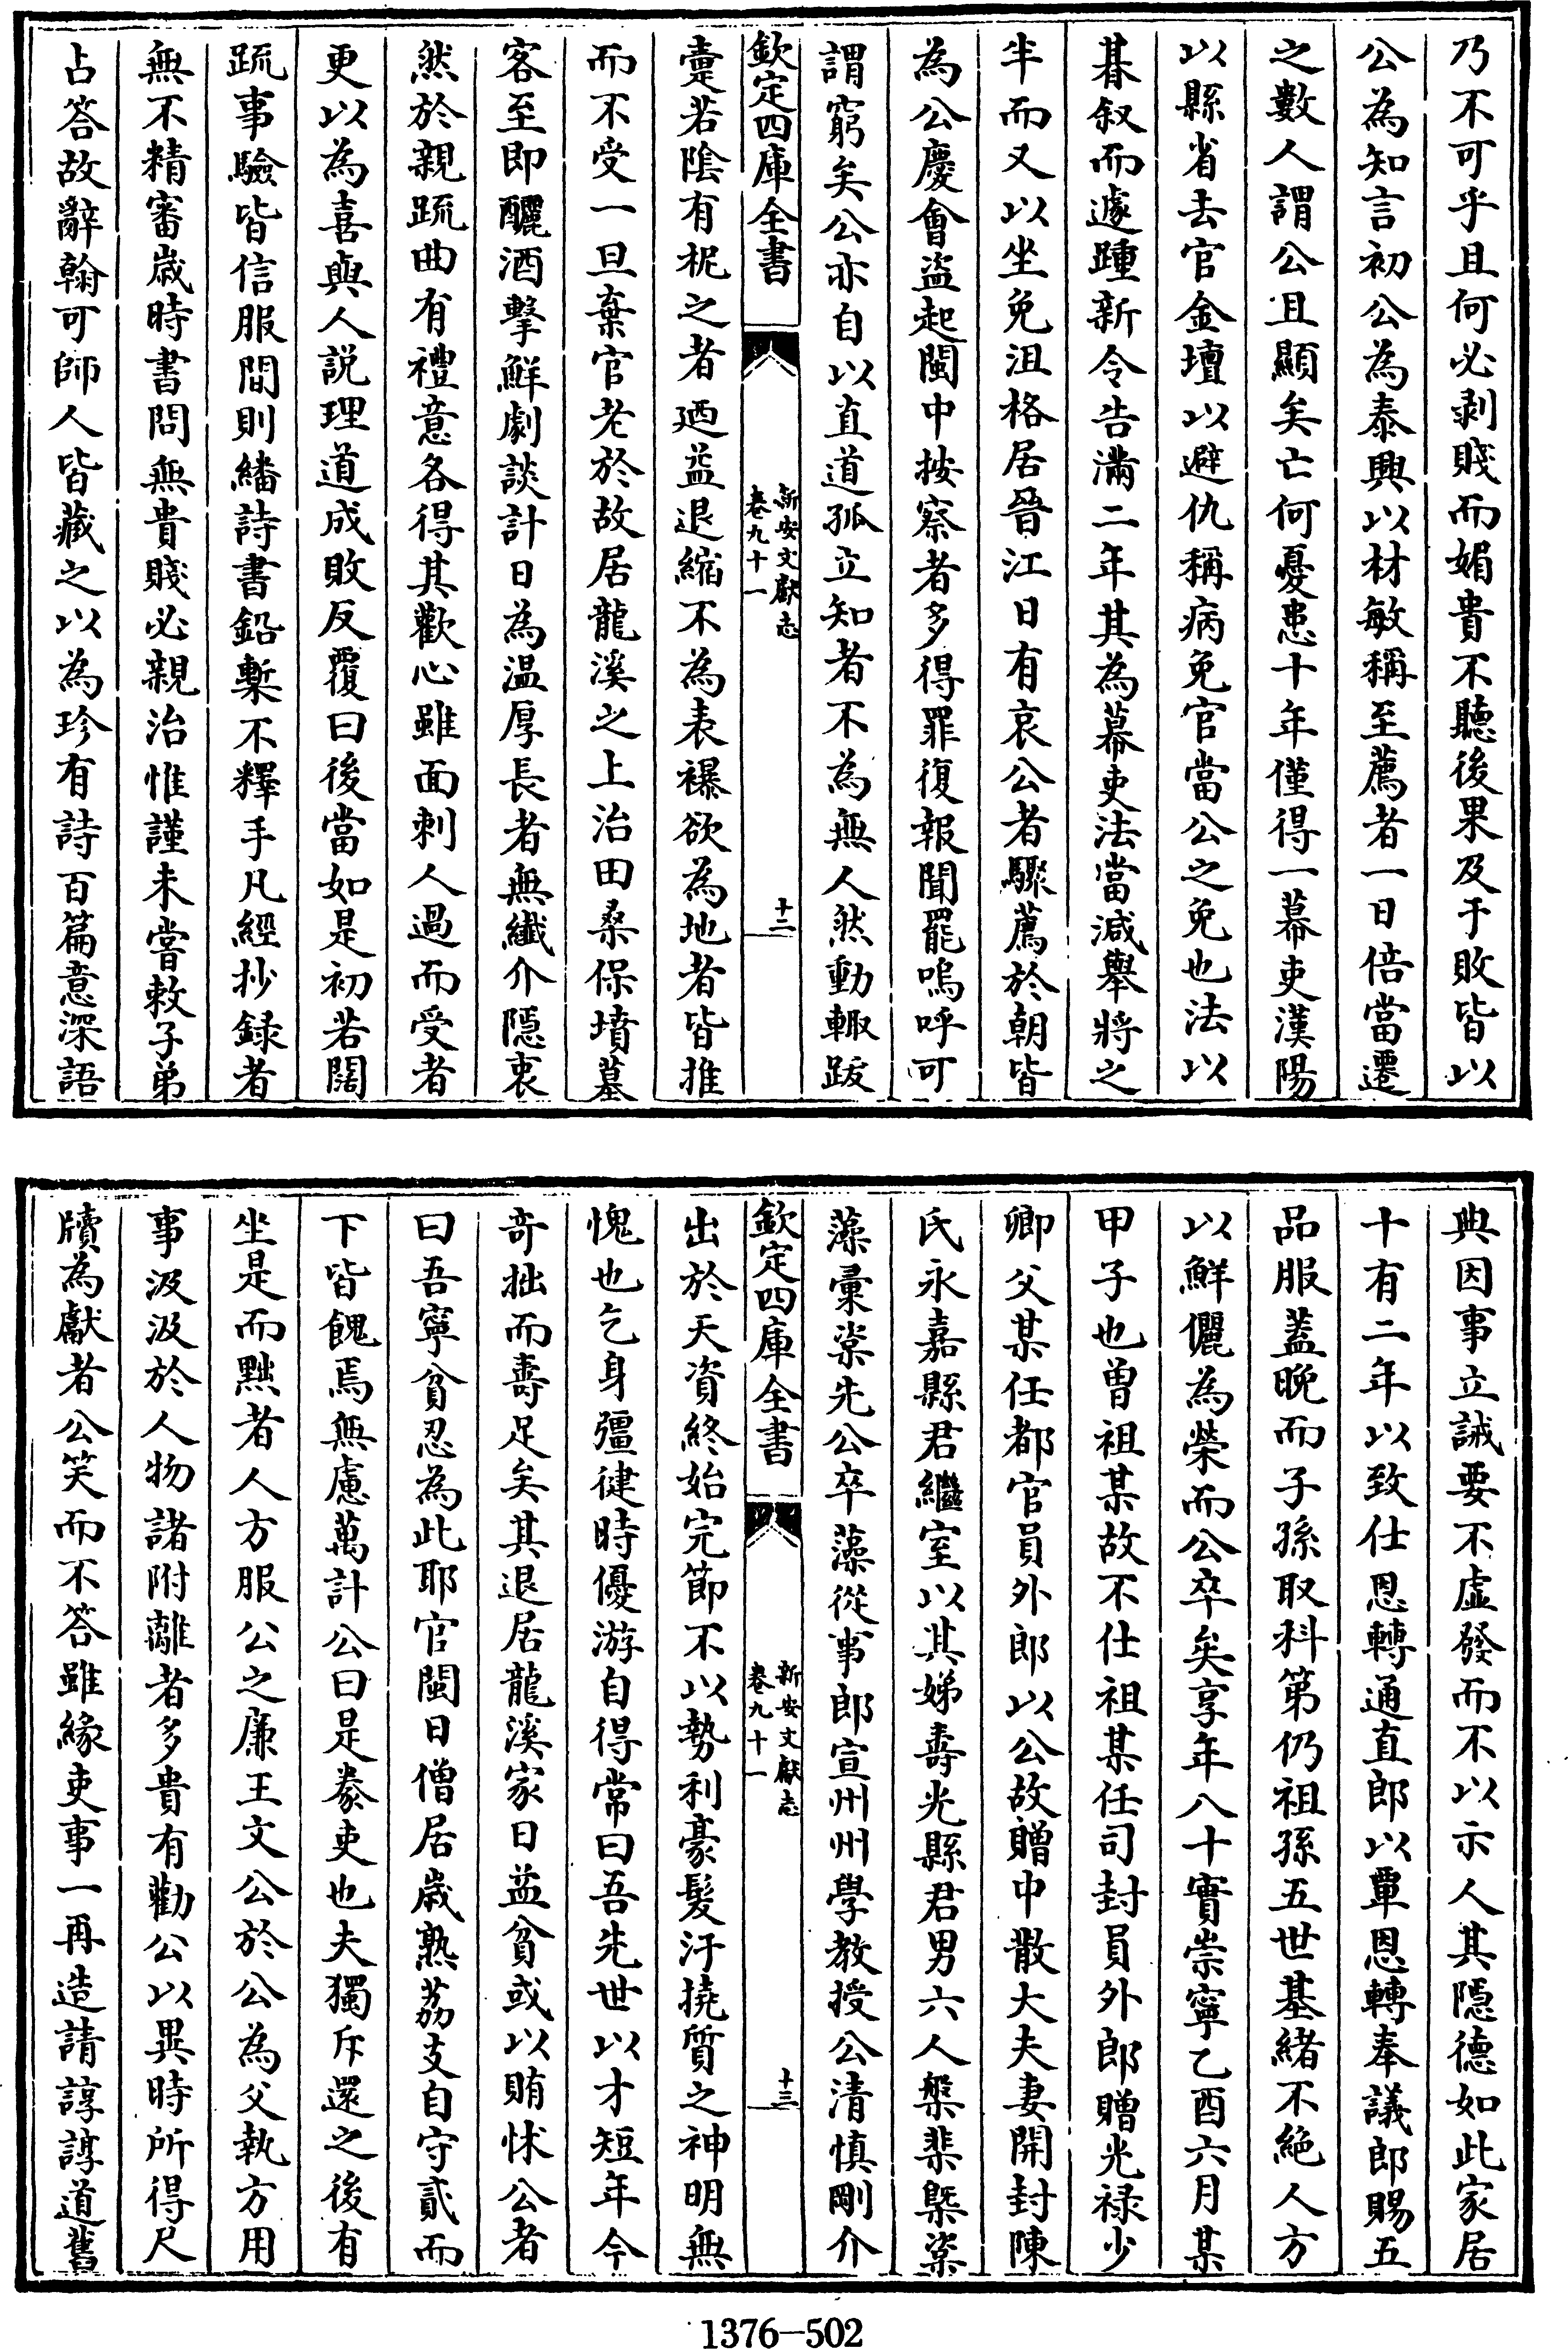 乃不可乎且何必剥賤而媚貴不聽後果及于敗皆以
公為知言初公為泰興以材敏稱至薦者一日倍當遷
之數人謂公且顯矣亡何憂患十年僅得一幕吏漢陽
以縣省去官金壇以避仇稱病免官當公之免也法以
朞叙而遽踵新令告滿二年其為幕吏法當減舉將之
半而又以坐免沮格居晉江日有哀公者驟薦於朝皆
為公慶會盜起閩中按察者多得罪復報聞罷嗚呼可
謂窮矣公亦自以直道孤立知者不為無人然動輙跋
欽定四庫全書
新安文獻志
卷九十一
十二
疐若陰有柅之者廼益退縮不為表襮欲為地者皆推
而不受一旦棄官老於故居龍溪之上治田桑保墳墓
客至即釃酒擊鮮劇談計日為温厚長者無纖介隱衷
然於親疏曲有禮意各得其歡心雖面刺人過而受者
更以為喜與人説理道成敗反覆曰後當如是初若闊
疏事驗皆信服間則繙詩書鉛槧不釋手凡經抄録者
無不精審嵗時書問無貴賤必親治惟謹未嘗敕子弟
占答故辭翰可師人皆藏之以為珍有詩百篇意深語
典因事立誡要不虛發而不以示人其隱德如此家居
十有二年以致仕恩轉通直郎以覃恩轉奉議郎賜五
品服蓋晚而子孫取科第仍祖孫五世基緒不絶人方
以鮮儷為榮而公卒矣享年八十實崇寧乙酉六月某
甲子也曾祖某故不仕祖某任司封員外郎贈光禄少
卿父某任都官員外郎以公故贈中散大夫妻開封陳
氏永嘉縣君繼室以其娣壽光縣君男六人槃棐槩楶
藻㮚棠先公卒藻從事郎宣州州學教授公清慎剛介
欽定四庫全書
新安文獻志
卷九十一
十三
出於天資終始完節不以勢利豪髮汙撓質之神明無
愧也乞身彊健時優游自得常曰吾先世以才短年今
奇拙而壽足矣其退居龍溪家日益貧或以賄怵公者
曰吾寧貧忍為此耶官閩日僧居嵗熟荔支自守貳而
下皆餽焉無慮萬計公曰是豢吏也夫獨斥還之後有
坐是而黜者人方服公之亷王文公於公為父執方用
事汲汲於人物諸附離者多貴有勸公以異時所得尺
牘為獻者公笑而不答雖緣吏事一再造請諄諄道舊
1376—502